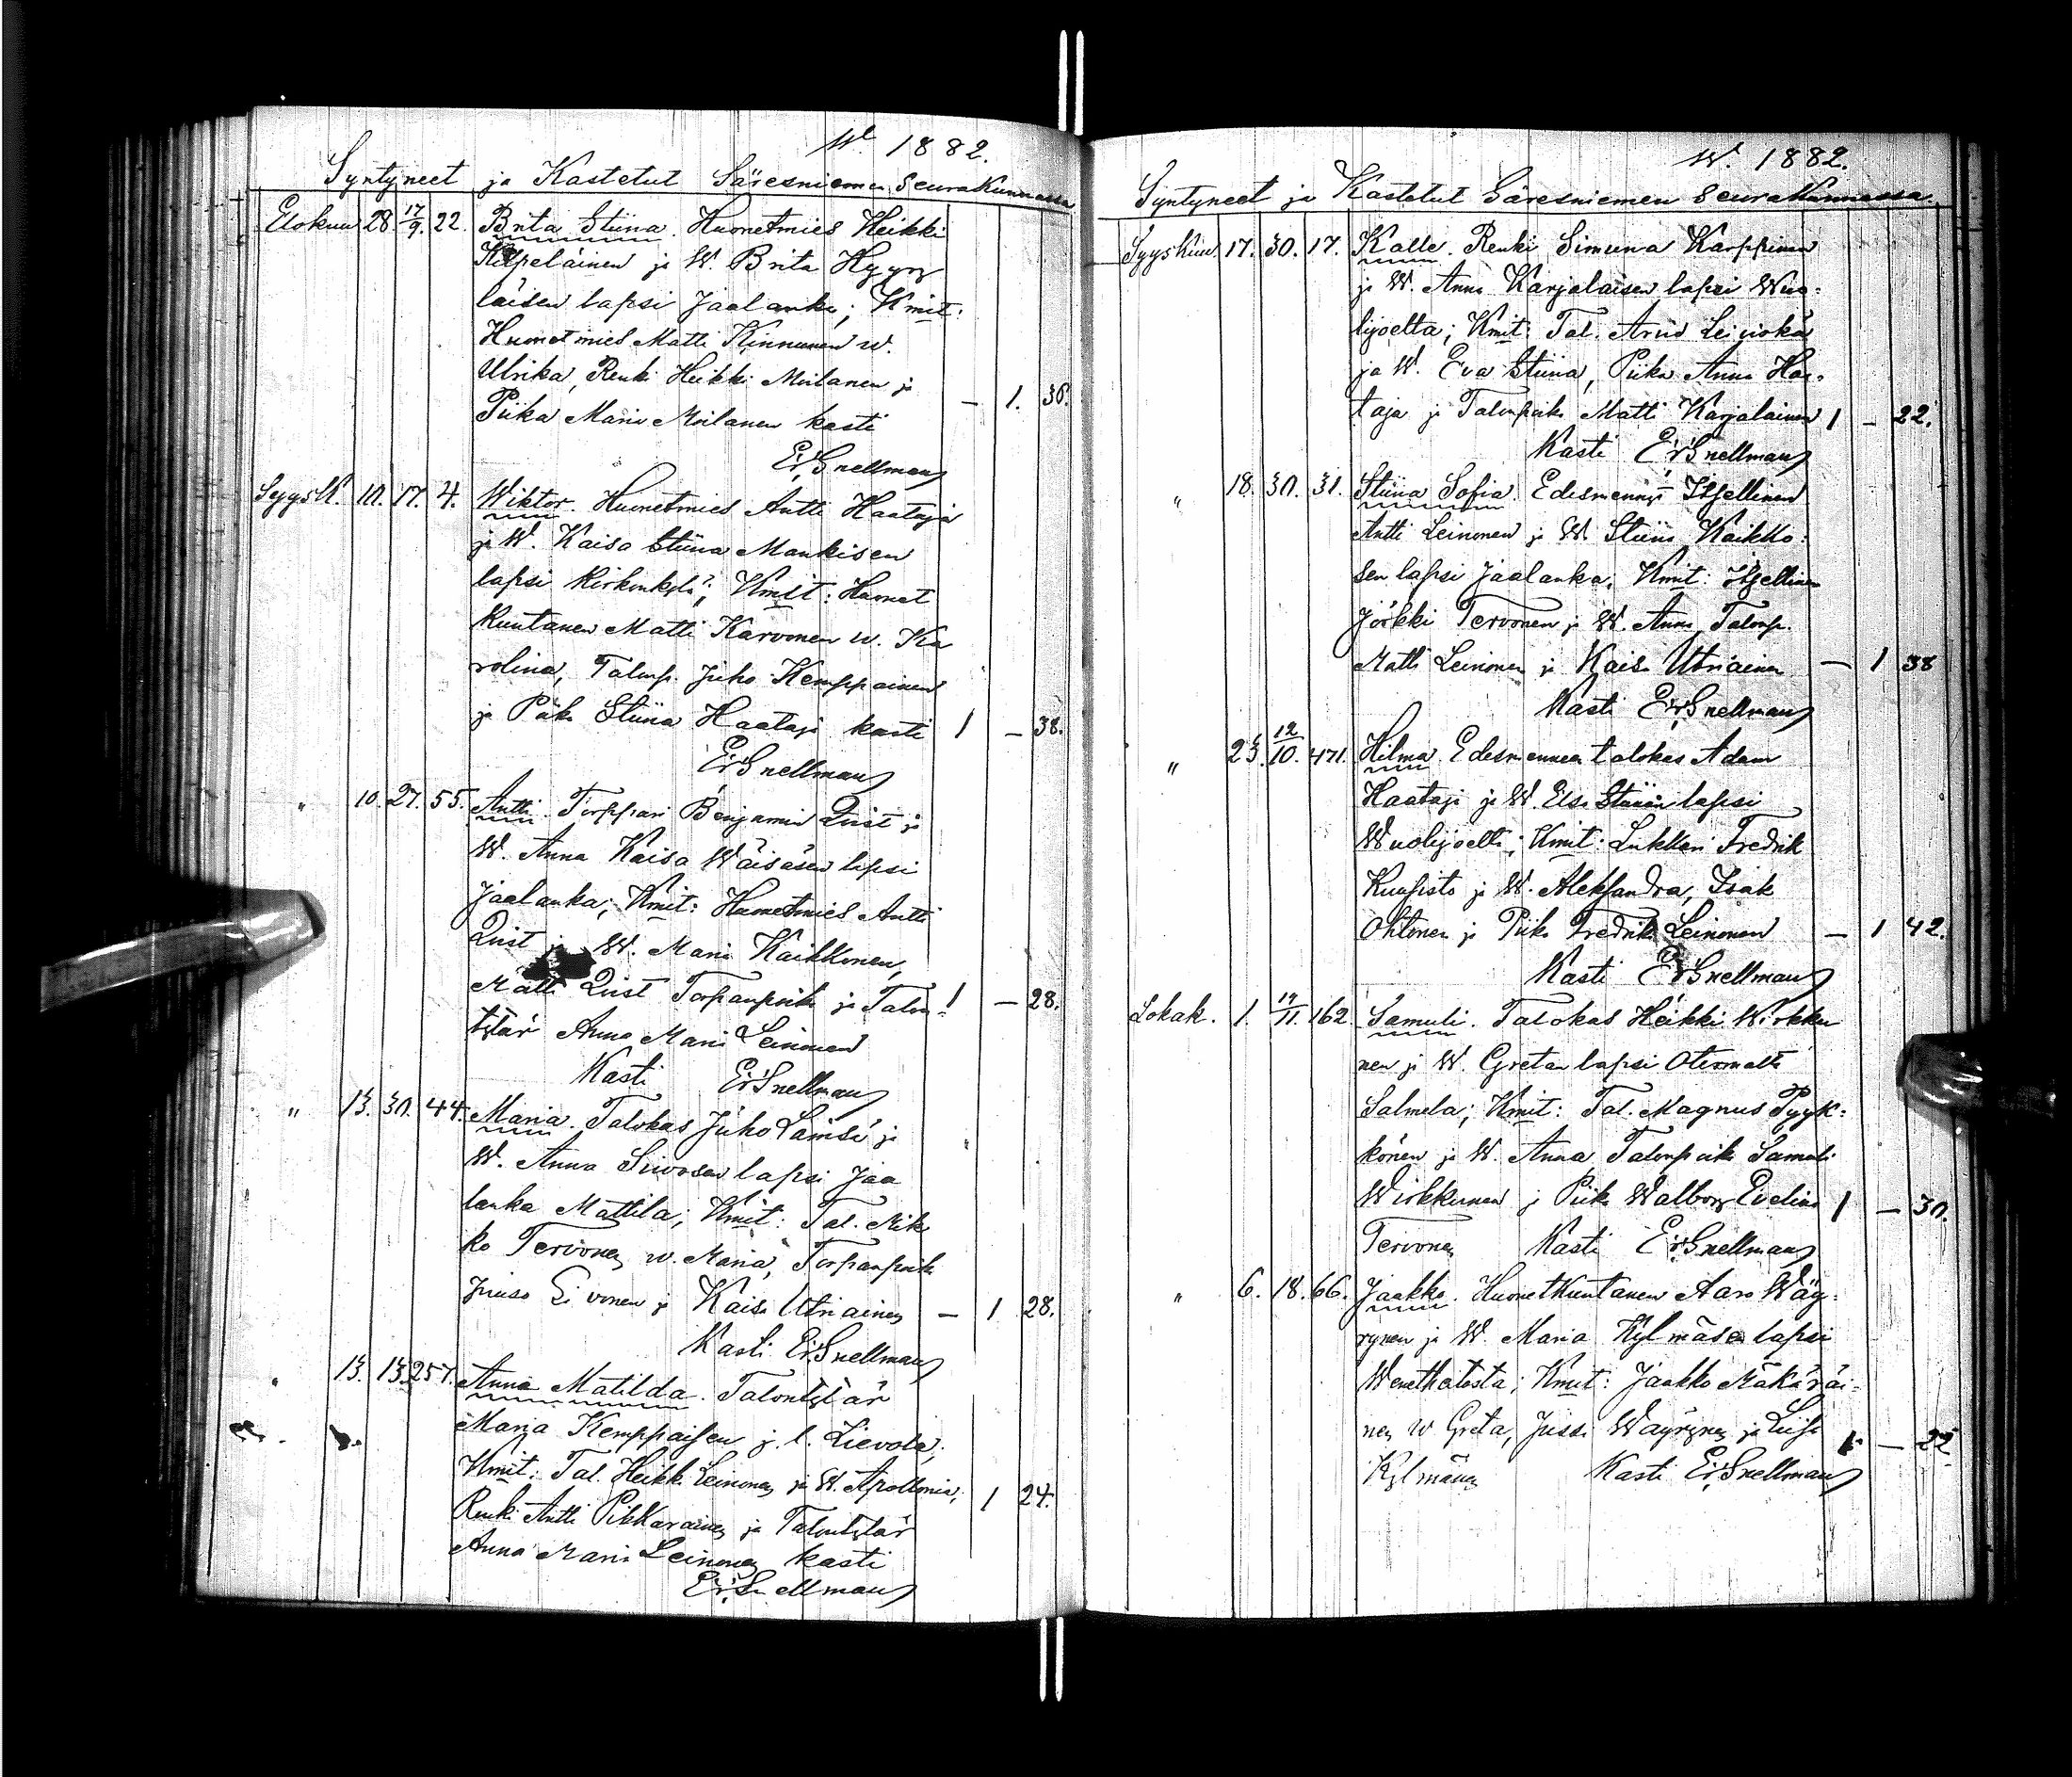 W. 1882.
Syntyneet ja Kastetut Säresniemen Seurakunnassa
Elokuu 28. 17/9. 22. Brita Stiina. Huonetmies Heikki
Kilpeläinen ja W. Brita Hyyry
läisen lapsi Jaalanka; Kmit:
Huonetmies Matti Kinnunen w.
Ulrika, Renki Heikki Moilanen ja
Piika Maria Moilanen kasti — 1. 30.
Er. Snellman
SyysK. 10. 17. 4. Wiktor. Huonetmies Antti Haataja
ja W. Kaisa Stiina Mankisen
lapsi Kirkonkylä; Kmit: Huonet
kuntanen Matti Karvonen w. Ka
rolina, Talonp. Juho Kemppainen
ja Piika Stiina Haataja kasti 1 — 38.
Er. Snellman
" 10. 27. 55. Antti. Torppari Benjamin Qvist ja
W. Anna Kaisa Wäisäsen lapsi
Jaalanka; Kmit: Huonetmies Antti
Qvist ja W. Maria Kaikkonen,
Matti Qvist Torpanpoika ja Talon- 1 — 28.
tytär Anna Maria Leinonen
Kasti Er. Snellman
" 13. 30. 44. Maria. Talokas Juho Lämsä ja
W. Anna Siwosen lapsi Jaa
lanka Mattila; Kmit: Tal. Mik
ko Tervonen w. Maria, Torpanpoik
Juuso Sivonen ja Kaisa Utriainen — 1 28.
Kasti Er. Snellman
" 13. 13. 257. Anna Matilda. Talontytär
Marja Kemppaisen j. l. Lievola;
Kmit: Tal. Heikki Leinonen ja W. Apollonia,
Renki Antti Pikkarainen ja Talontytär 1 24.
Anna Maria Leinonen kasti
Er. Snellman
W. 1882.
Syntyneet ja Kastetut Säresniemen Seurakunnassa.
SyysKuu. 17. 30. 17. Kalle. Renki Simuna Karppinen
ja W. Anna Karjalaisen lapsi Wuo-
lijoelta; Kmit: Tal. Leiviskä
ja W. Eva Stiina, Piika Anna Haa-
taja ja Talonpoika Matti Karjalainen 1 — 22.
Kasti Er. Snellman
" 18. 30. 31. Stiina Sofia. Edesmennyt Itsellinen
Antti Leinonen ja W Stiina Kaikko-
sen lapsi Jaalanka; Kmit: Itsellinen
Jörkki Tervonen ja W. Anna, Talonp.
Matti Leinonen ja Kaisa Utriainen — 1 38
Kasti Er. Snellman
" 23. 12/10. 471. Hilma. Edesmennen talokas Adam
Haataja ja W. Elsa Stiinan lapsi
Wuolijoelta; Kmit: Lukkari Fredrik
Kuusisto ja W. Aleksandra, Isak
Ohtonen ja Piika Fredrika Leinonen — 1 42.
Kasti Er. Snellman
Lokak. 1. 14/11. 162 Samuli. Talokas Heikki Wirkku
nen ja W. Gretan lapsi Otermalta
Salmela; Kmit: Tal. Magnus Pyyk-
könen ja W. Anna, Talonpoika Samuli
Wirkkunen ja Piika Walborg Evelina 1 — 30.
Tervonen Kasti Er. Snellman
" 6. 18. 66. Jaakko. Huonetkuntanen Aaro Wäy-
rynen ja W. Maria Kylmäsen lapsi
Wenetheitosta; Kmit: Jaakko Mäkäräi-
nen w Greta, Jussi Wäyrynen ja Liisa 1 — 22
Kylmänen Kasti Er. Snellman